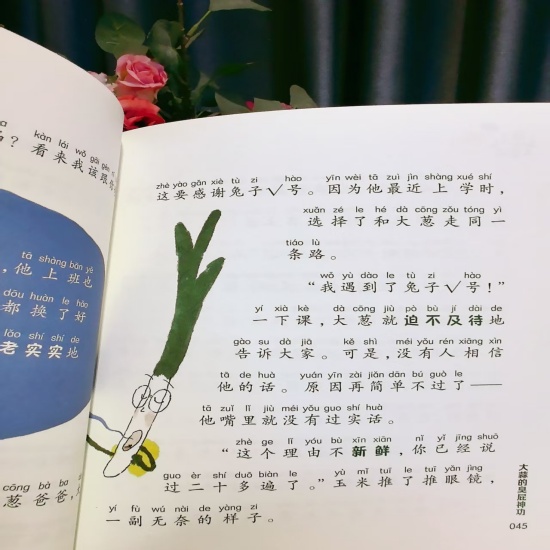 kàn lái wǒ gāi gēn
？看来我该跟
tā shàng bān yě
，他上班也
dōu huàn le hǎo
都换了好
lǎo shí shí de
老实实地
cōng bà ba
葱爸爸，
zhè yào gǎn xiè tù zi hào yīn wèi tā zuì jìn shàng xué shí
这要感谢兔子√号。因为他最近上学时，
xuǎn zé le hé dà cōng zǒu tóng yì
选择了和大葱走同一
tiáo lù
条路。
wǒ yù dào le tù zi hào
“我遇到了兔子√号！”
yí xià kè dà cōng jiù pò bù jí dài de
一下课，大葱就迫不及待地
gào su dà jiā kě shì méi yǒu rén xiāng xìn
告诉大家。可是，没有人相信
tā de huà yuán yīn zài jiǎn dān bú guò le
他的话。原因再简单不过了——
tā zuǐ lǐ jiù méi yǒu guo shí huà
他嘴里就没有过实话。
zhè ge lǐ yóu bù xīn xiān nǐ yǐ jīng shuō
“这个理由不新鲜，你已经说
guo èr shí duō biàn le yù mǐ tuī le tuī yǎn jìng
过二十多遍了。”玉米推了推眼镜，
yí fù wú nài de yàng zi
一副无奈的样子。
大蒜的臭屁神功
045